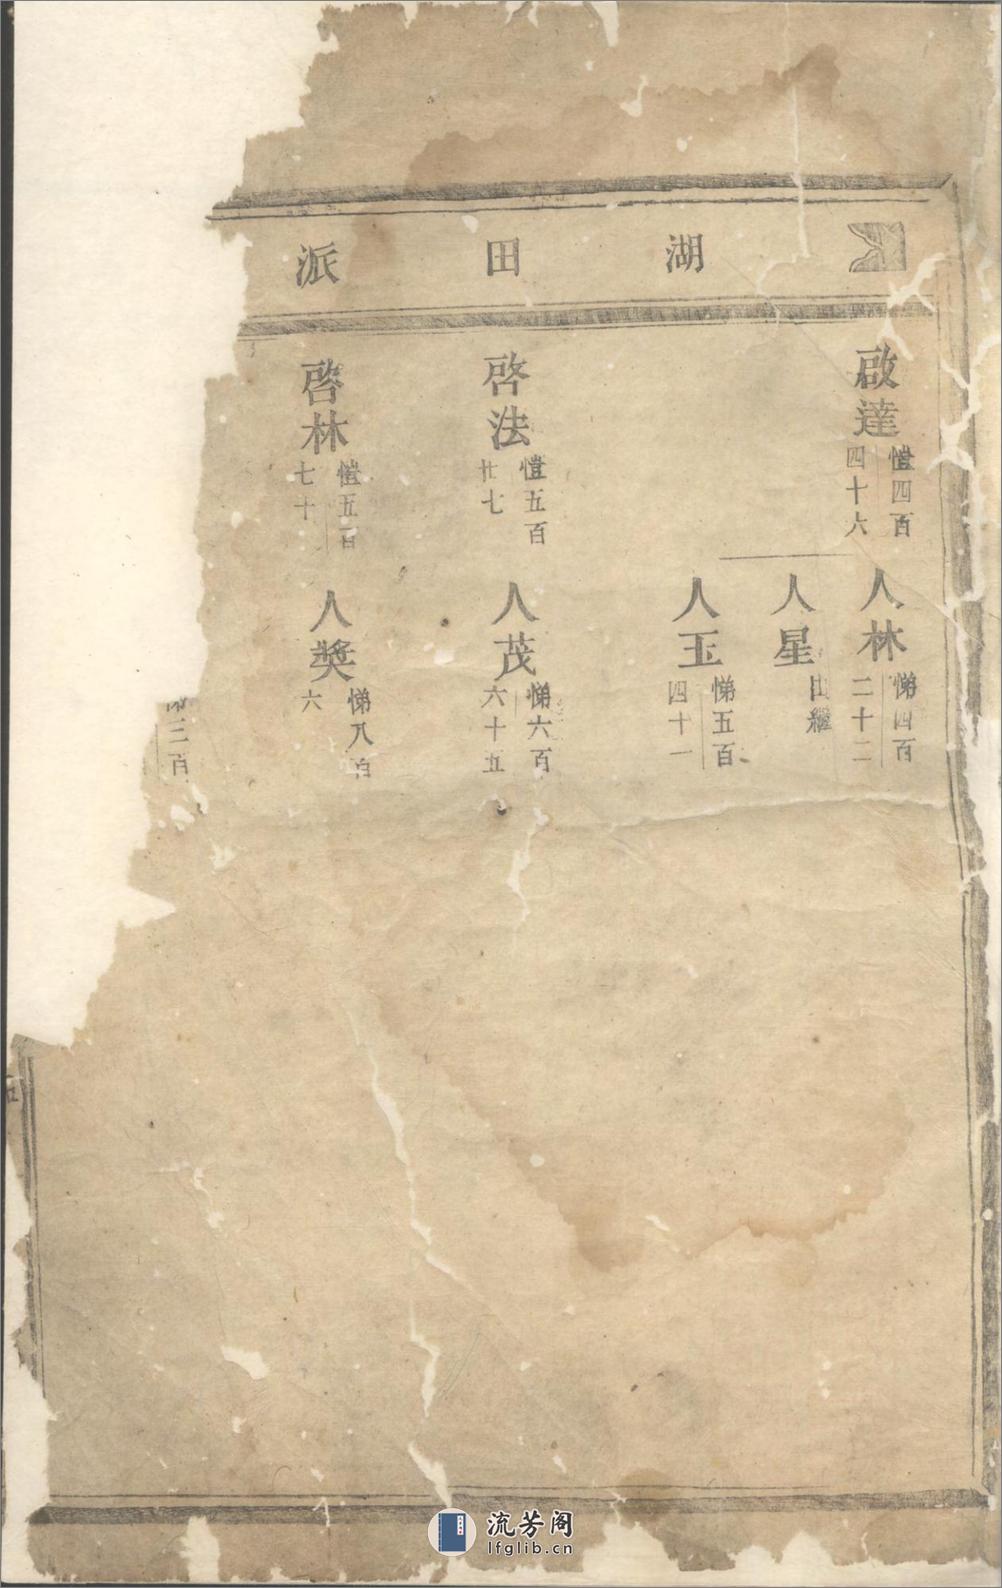 湖田派
啟達
愷四百
四十六
人林
悌四百
二十二
人星
出繼
人玉
悌五百
四十一
啓法
愷五百
廿七
人茂
悌六百
六十五
啓林
愷五百
七十
人奬
悌八百
六
三百
流芳阁
lfglib.cn